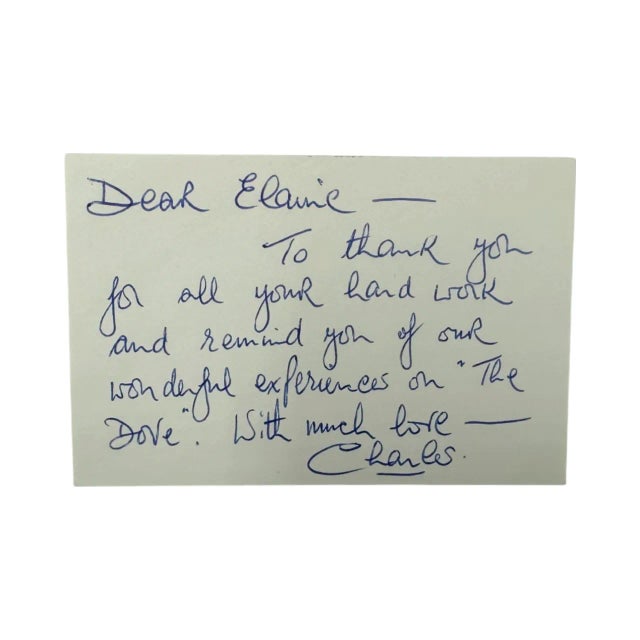 Dear Elaine —
To thank you
for all your hard work
and remind you of our
wonderful experiences on "The
Dove". With much love —
Charles.